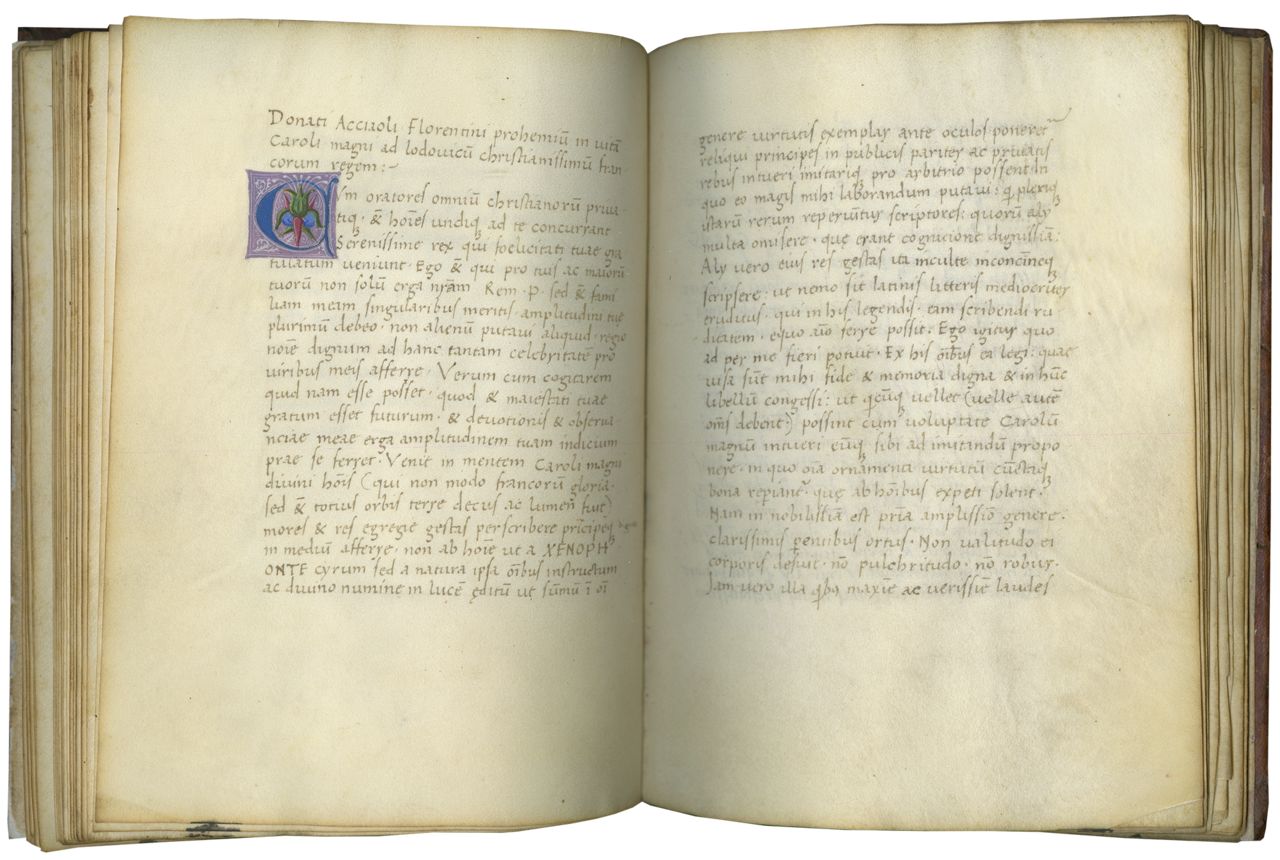 Donati Acciaoli Florentini prohemiũ in uitã
Caroli magni ad lodouicũ christianissimũ fran
corum regem :~
CVm oratores omniũ christianorũ priua
tiq; & hoĩes undiq; ad te concurrant
Serenissime rex qui foelicitati tuae gra
tulatum ueniunt · Ego & qui pro tuis ac maiorũ
tuorũ non solũ erga nr̃am Rem · P · sed & fami
liam meam singularibus meritis · amplitudini tuę
plurimũ debeo · non alienũ putaui aliquid regio
noĩe dignum ad hanc tantam celebritatẽ pro
uiribus meis afferre · Verum cum cogitarem
quid nam esse posset · quod & maiestati tuae
gratum esset futurum · & deuotionis & obserua
nciae meae erga amplitudinem tuam indicium
prae se ferret · Venit in mentem Caroli magni
diuini hoĩs (qui non modo francorũ gloria ·
sed & totius orbis terrę decus ac lumen fuit)
mores & res egregie gestas perscribere prĩcipẽq;
in mediũ afferre · non ab hoĩe ut a XENOPH
ONTE cyrum sed a natura ipsa oĩbus instructum
ac diuino numine in lucẽ ęditũ ut sũmũ ĩ oĩ
genere uirtutis exemplar ante oculos poneret
reliqui principes in publicis pariter ac priuatis
rebus intueri imitariq; pro arbitrio possent in
quo eo magis mihi laborandum putaui : q̃ pleriq;
istarũ rerum reperiũtur scriptores : quorũ aly
multa omisere · quę erant cognicione dignissĩa :
Aly uero eius res gestas ita inculte inconcĩneq;
scripsere : ut nemo sit latinis litteris mediocriter
eruditus · qui in his legendis · eam scribendi ru
dicatem · equo aĩo ferre possit · Ego igitur quo
ad per me fieri potuit · Ex his oĩbus ea legi : quae
uisa sũt mihi fide & memoria digna & in hũc
libellũ congessi : ut q̃cũq; uellet (uelle autẽ
om̃s debent) possint cum uoluptate Carolũ
magnũ intueri eũq; sibi ad imitandũ propo
nere · in quo oĩa ornamenta uirtutũ cũctaq;
bona repiant̃ · quę ab hoĩbus expeti solent ·
Nam in nobilissĩa est prĩa amplissĩo genere ·
clarissimis gentibus ortus · Non ualitudo ei
corporis defuit · nõ pulchritudo · nõ robur ·
Jam uero illa q̃bus maxĩe ac uerissĩe laudes